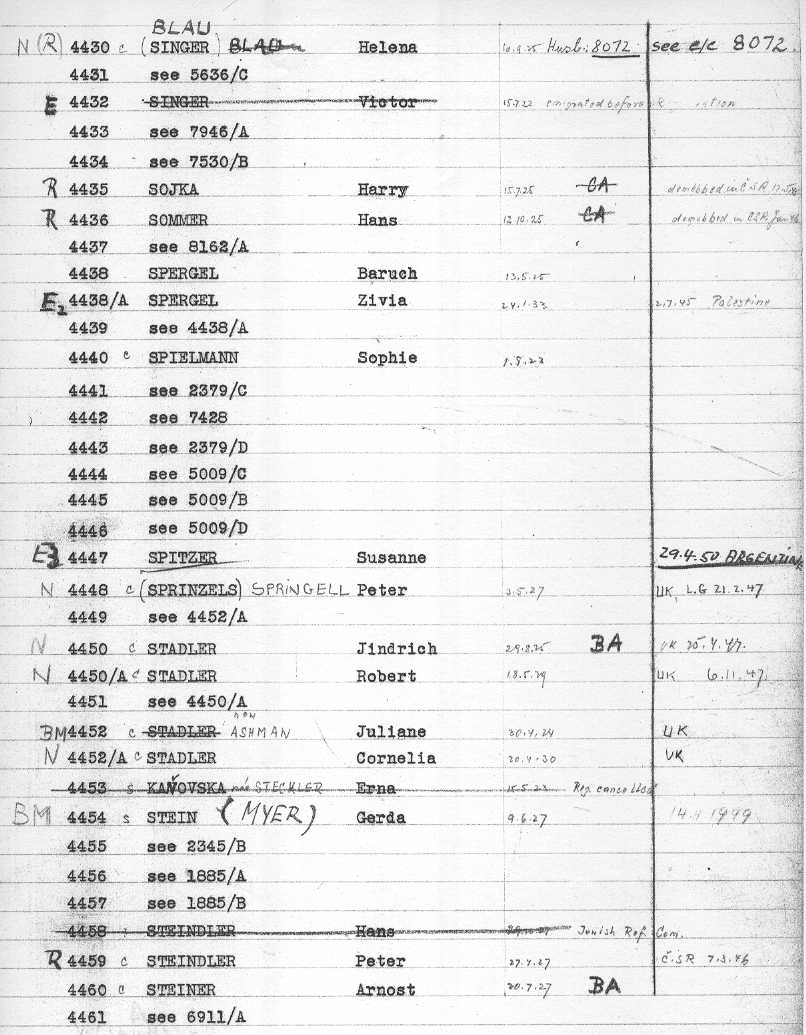 BLAU
N (R) 4430 c (SINGER) BLAU Helena Husb: 8072 see c/c 8072.
4431 see 5636/C
E 4432 SINGER Victor 15.7.22 emigrated before
4433 see 7946/A
4434 see 7530/B
R 4435 SOJKA Harry 15.7.25 CA demobbed in ČSR
R 4436 SOMMER Hans 12.10.25 CA demobbed in CSR Jan 46
4437 see 8162/A
4438 SPERGEL Baruch 13.5.25
E2 4438/A SPERGEL Zivia 24.1.33 2.7.45 Palestine
4439 see 4438/A
4440 c SPIELMANN Sophie
4441 see 2379/C
4442 see 7428
4443 see 2379/D
4444 see 5009/C
4445 see 5009/B
4446 see 5009/D
E3 4447 SPITZER Susanne 29.4.50 ARGENTINA
N 4448 c (SPRINZELS) SPRINGELL Peter 3.5.27 UK, L.G 21.2.47
4449 see 4452/A
N 4450 c STADLER Jindrich 29.8.25 BA UK 25.4.47.
N 4450/A c STADLER Robert 18.5.29 UK 6.11.47.
4451 see 4450/A
now
BM 4452 c STADLER ASHMAN Juliane 20.4.24 UK
N 4452/A c STADLER Cornelia 20.4.30 UK
4453 s KAŇOVSKA née STECKLER Erna 15.5.23 Reg. cancelled
BM 4454 s STEIN (MYER) Gerda 9.6.27 1949
4455 see 2345/B
4456 see 1885/A
4457 see 1885/B
4458 STEINDLER Hans Jewish Ref. Com.
R 4459 c STEINDLER Peter 27.4.27 ČSR 7.3.46
4460 c STEINER Arnost 20.7.27 BA
4461 see 6911/A